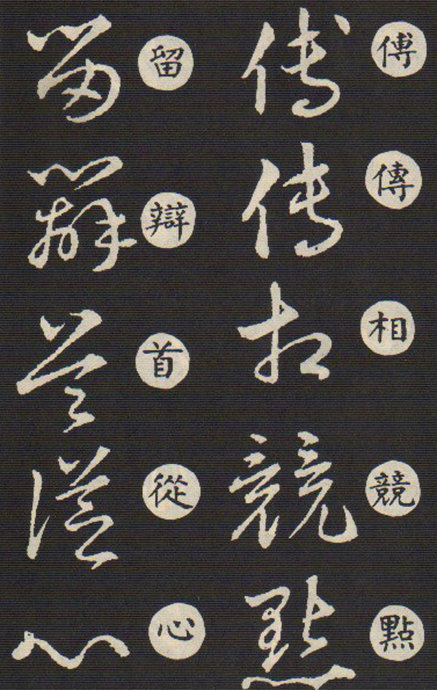 傅傳相競點
傅傳相競點
留辯首從心
留辯首從心